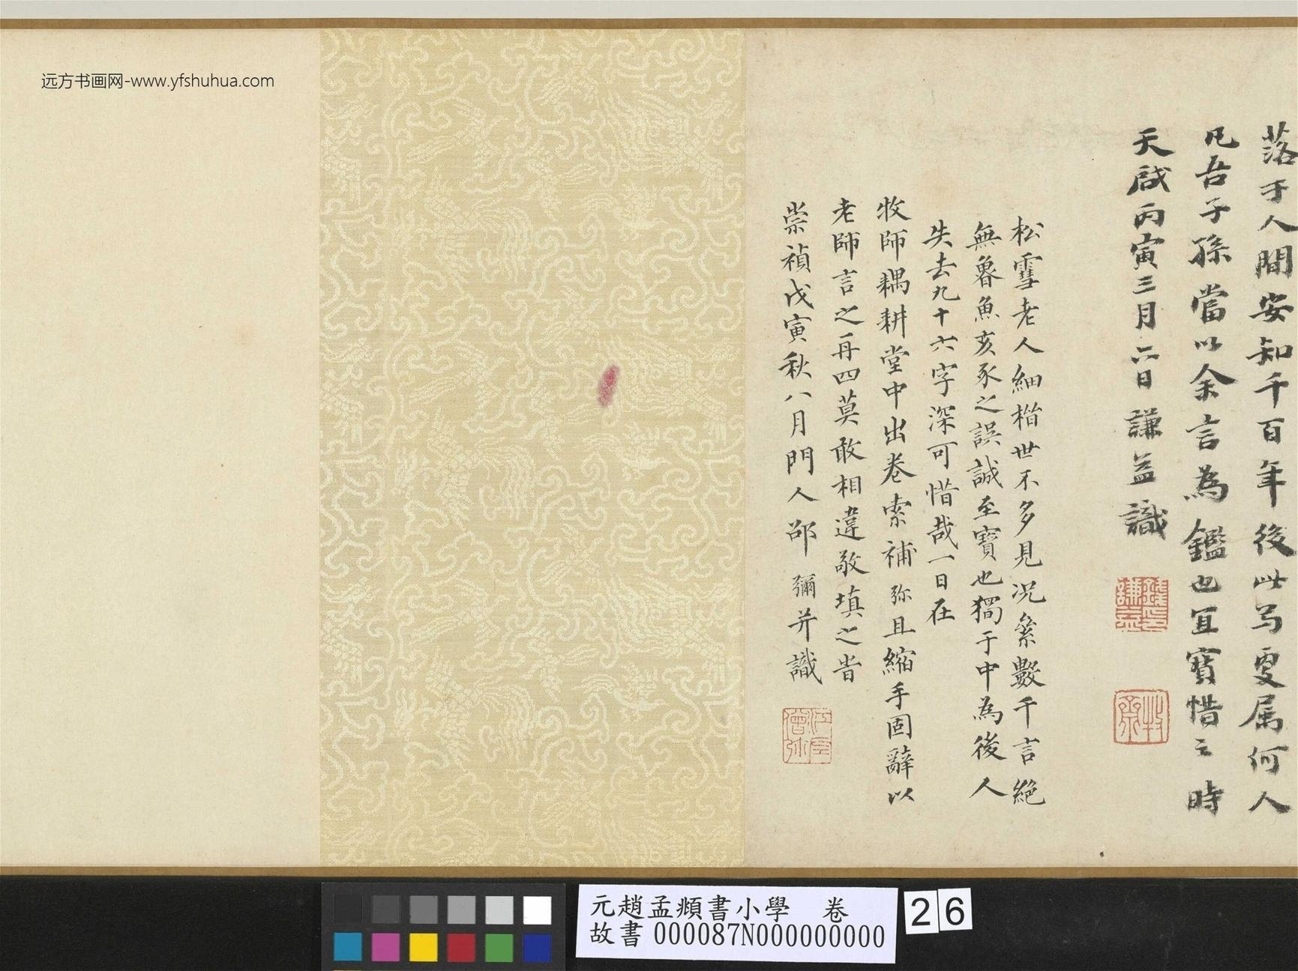 落于人間安知千百年後此為更属何人
凡吾子孫當以余言為鑑也宜寳惜之時
天啟丙寅三月六日謙益識
松雪老人細楷世不多見況纍數千言絕
無魯魚亥豕之誤誠至寳也獨于中為後人
失去九十六字深可惜哉一日在
牧師耦耕堂中出卷索補弥且縮手固辭以
老師言之再四莫敢相違敬填之旹
崇禎戊寅秋八月門人邵彌并識
远方书画网-www.yfshuhua.com
元趙孟頫書小學 卷
故書 000087N000000000
26